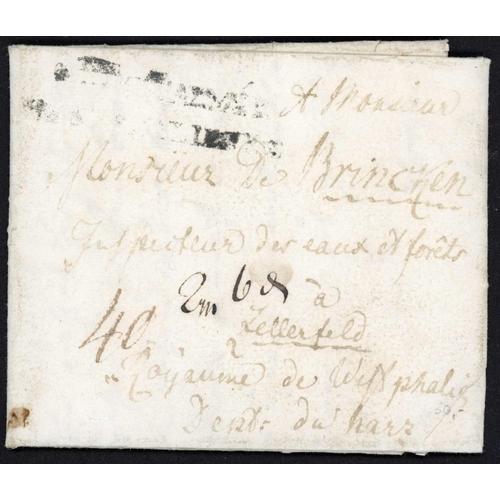 A Monsieur
Monsieur De Brincken
Inspecteur des eaux et forêts
à
Zellerfeld
40
Royaume de Westphalie
du harz